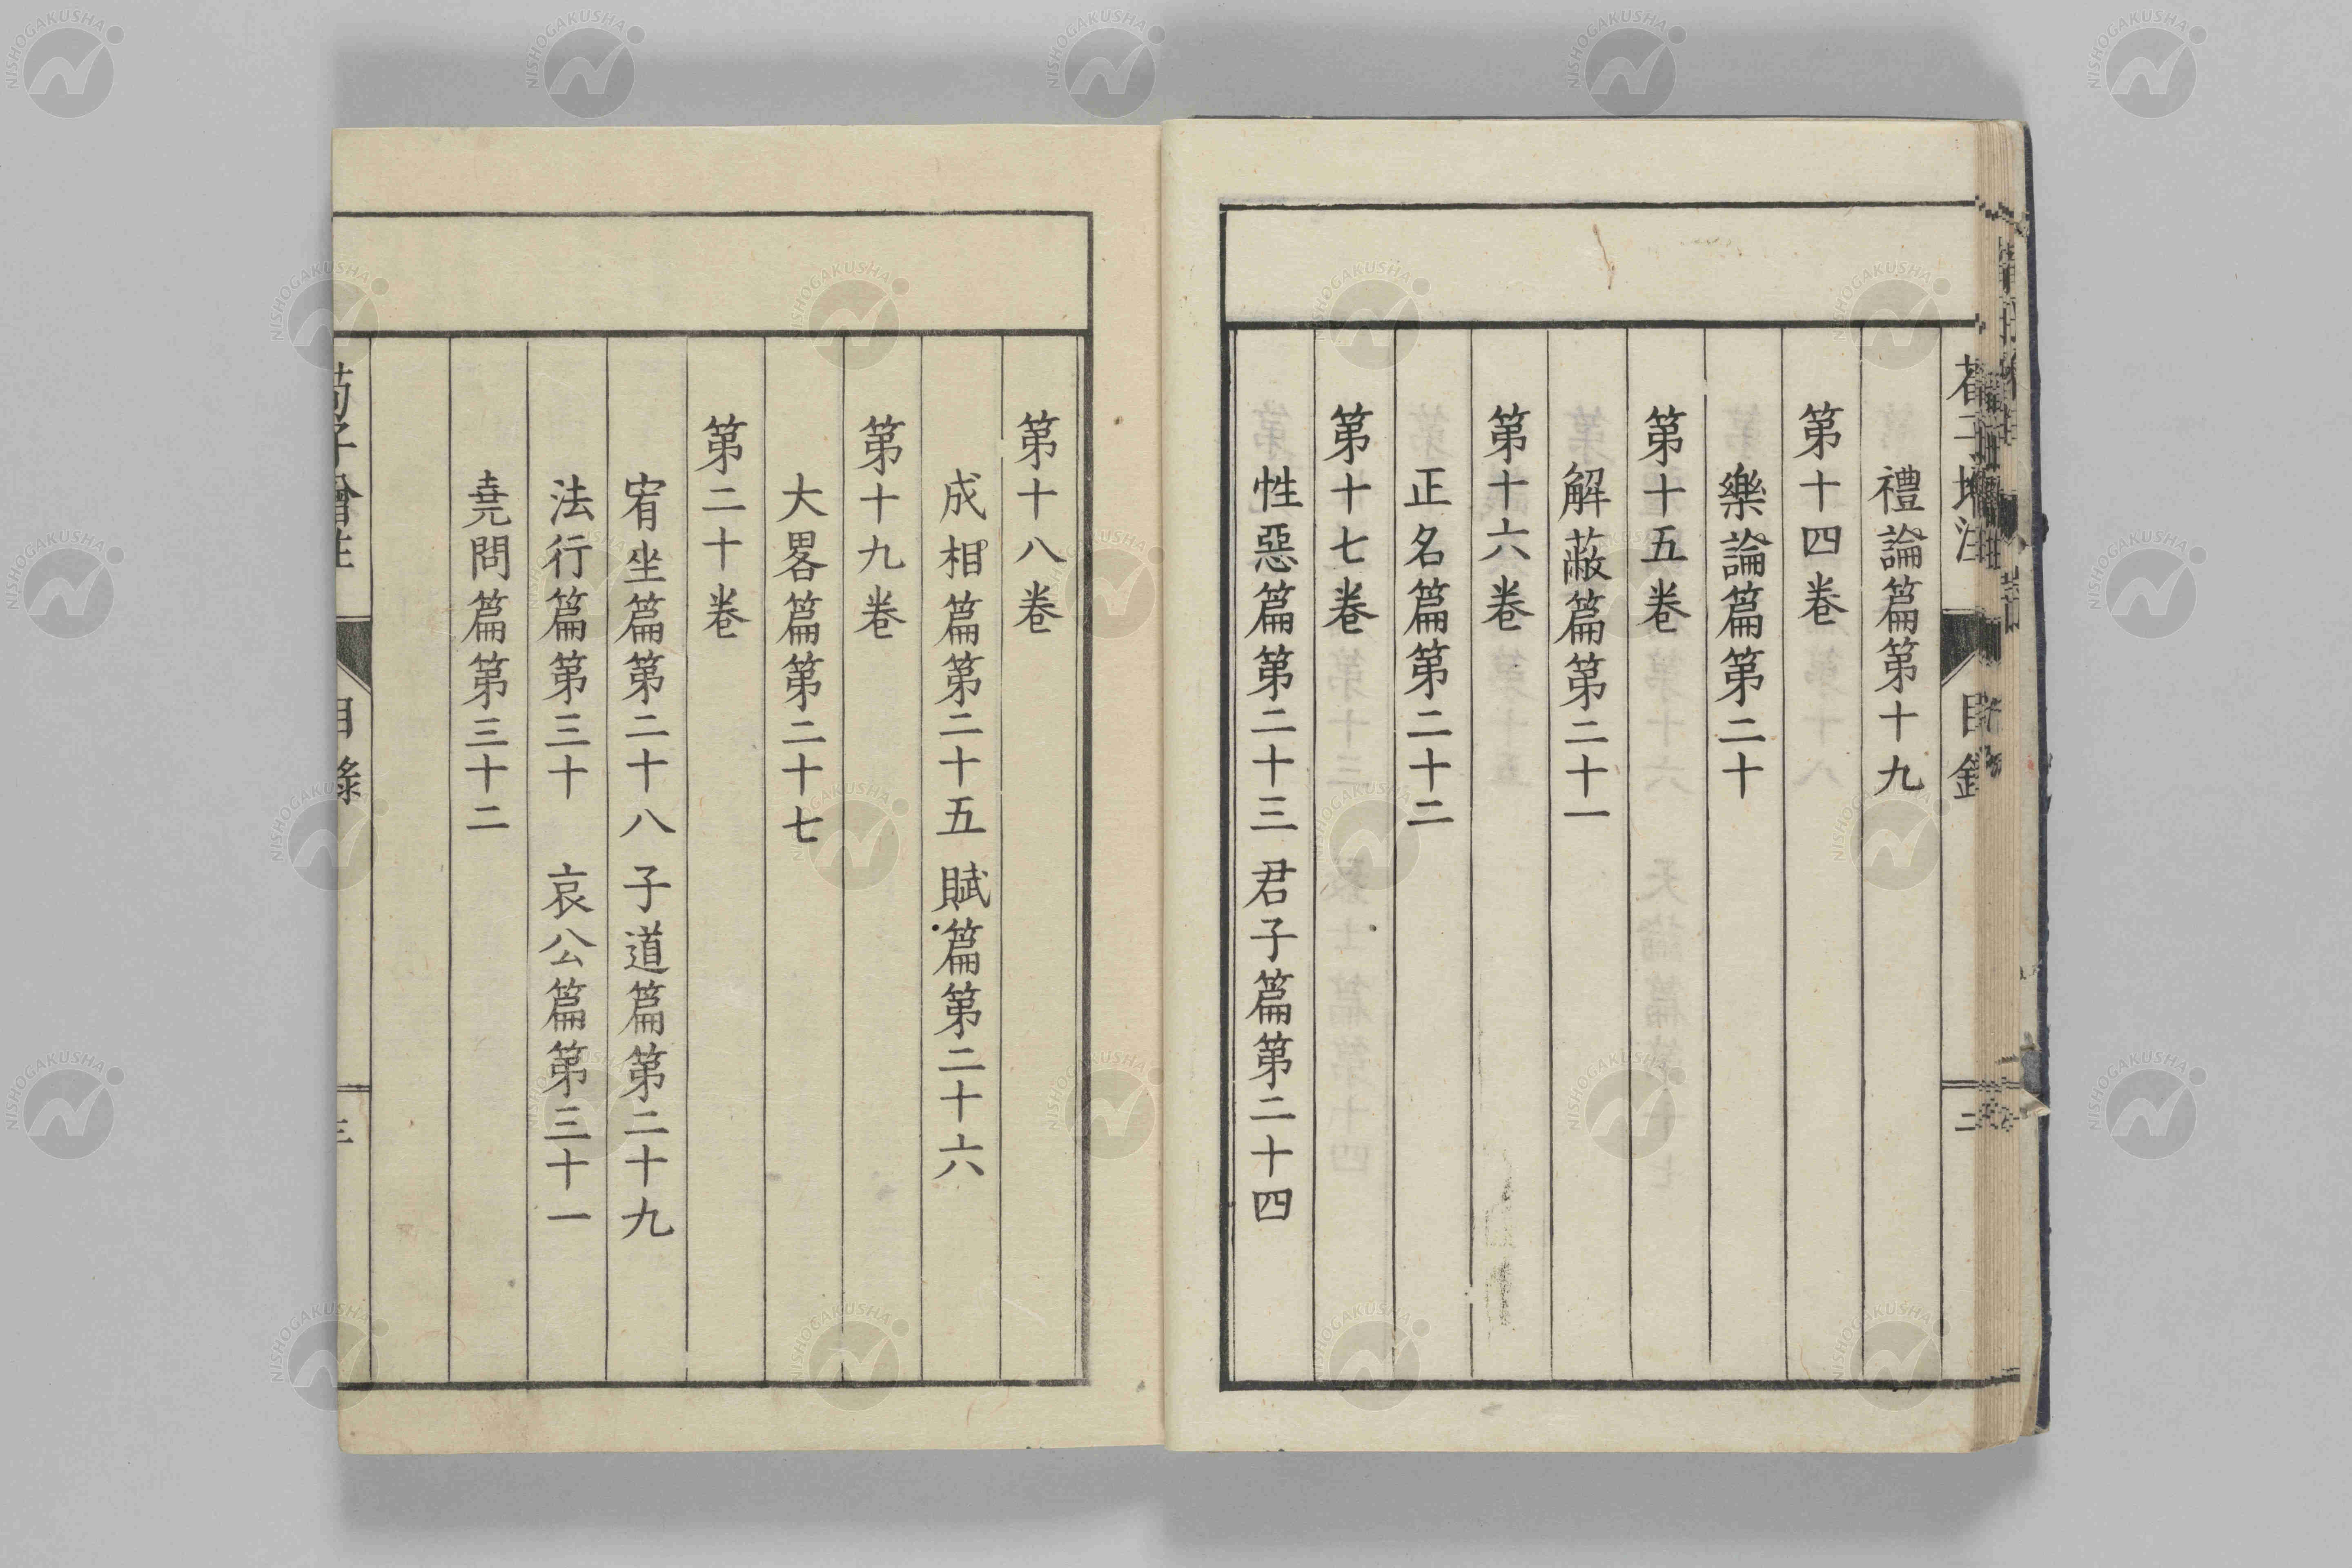 禮論篇第十九
第十四卷
樂論篇第二十
第十五卷
解蔽篇第二十一
第十六卷
正名篇第二十二
第十七卷
性惡篇第二十三 君子篇第二十四
第十八卷
成相篇第二十五 賦篇第二十六
第十九卷
大畧篇第二十七
第二十卷
宥坐篇第二十八 子道篇第二十九
法行篇第三十 哀公篇第三十一
堯問篇第三十二
目錄
三
NISHOGAKUSHA